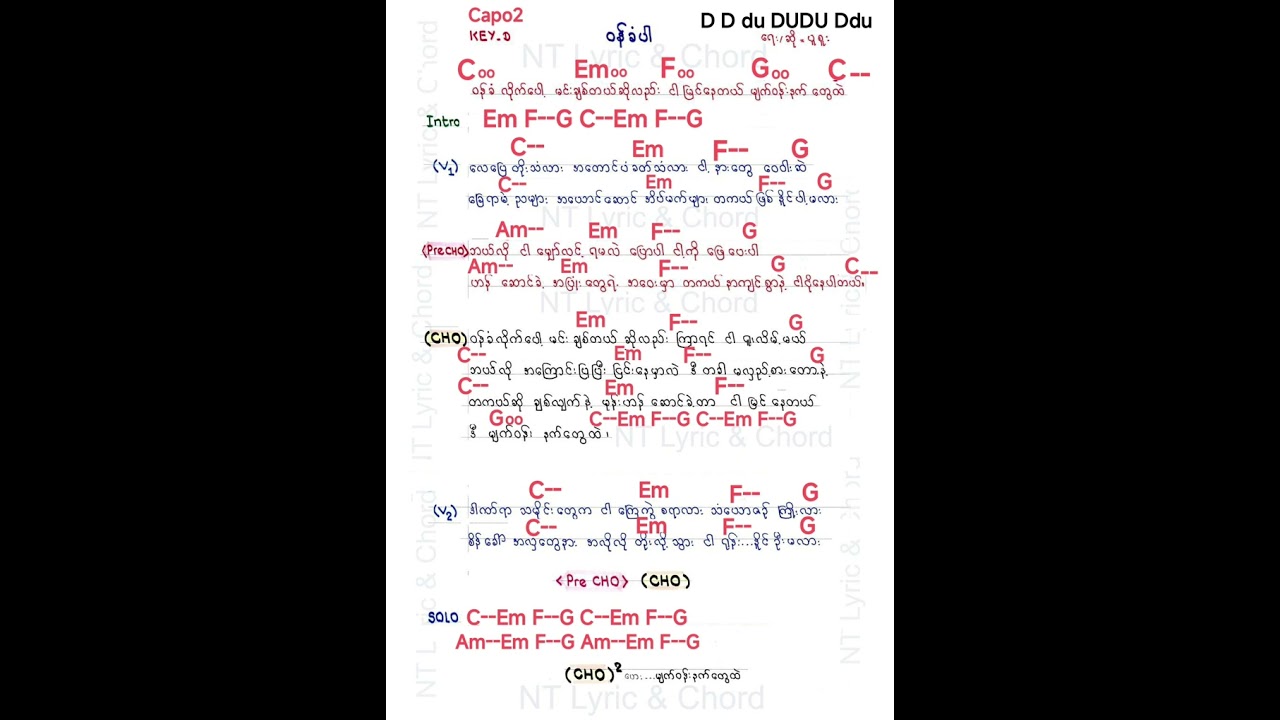 Capo2 D D du DUDU Ddu
KEY-D ဝန်ခံပါ ရေး/ဆို - ပူစူး
NT Lyric & Chord
Coo Emoo Foo Goo C--
ဝန်ခံ လိုက်ပေါ့ မင်းချစ်တယ်ဆိုလည်း ငါ မြင်နေတယ် မျက်ဝန်းနက် တွေထဲ
Intro Em F--G C--Em F--G
C-- Em F-- G
(V1) လေပြေ တိုးသံလား အတောင်ပံခတ်သံလား ငါ့ နားတွေ ဝေဝါးဆဲ
C-- Em F-- G
ခြွေရာမဲ့ ညများ အယောင်ဆောင် အိပ်မက်များ တကယ်ဖြစ် နိုင်ပါ့မလား
NT Lyric & Chord
Am-- Em F-- G
<Pre CHO> ဘယ်လို ငါ မျှော်လင့် ရမလဲ ပြောပါ ငါ့ကို ဖြေပေးပါ
Am-- Em F-- G C--
ဟန် ဆောင်ခဲ့ အပြုံးတွေရဲ့ အဝေးမှာ တကယ် နာကျင်စွာနဲ့ ငါငိုနေပါတယ်,
NT Lyric & Chord
Em F-- G
(CHO) ဝန်ခံလိုက်ပေါ့ မင်းချစ်တယ် ဆိုလည်း ကြာရင် ငါ ရူးလိမ့်မယ်
C-- Em F-- G
ဘယ်လို အကြောင်းပြပြီး ငြင်းနေမှာလဲ ဒီ တခါ မလှည့်စားတော့နဲ့
C-- Em F--
တကယ်ဆို ချစ်လျက်နဲ့ မုန်းဟန် ဆောင်ခဲ့တာ ငါ မြင် နေတယ်
Goo C--Em F--G C--Em F--G
ဒီ မျက်ဝန်း နက်တွေထဲ၊
NT Lyric & Chord
C-- Em F-- G
(V2) ဒါဏ်ရာ သမိုင်းတွေက ငါ ကြေကွဲ စရာလား သံယောဇဉ် ကြိုးလား
C-- Em F-- G
စိန်ခေါ် အလှတွေနား အလိုလို တိုးလို့သွား ငါ ရုန်း...နိုင် ဦးမလား
<Pre CHO> (CHO)
SOLO C--Em F--G C--Em F--G
Am--Em F--G Am--Em F--G
(CHO)2 ဟေး....မျက်ဝန်းနက်တွေထဲ
NT Lyric & Chord